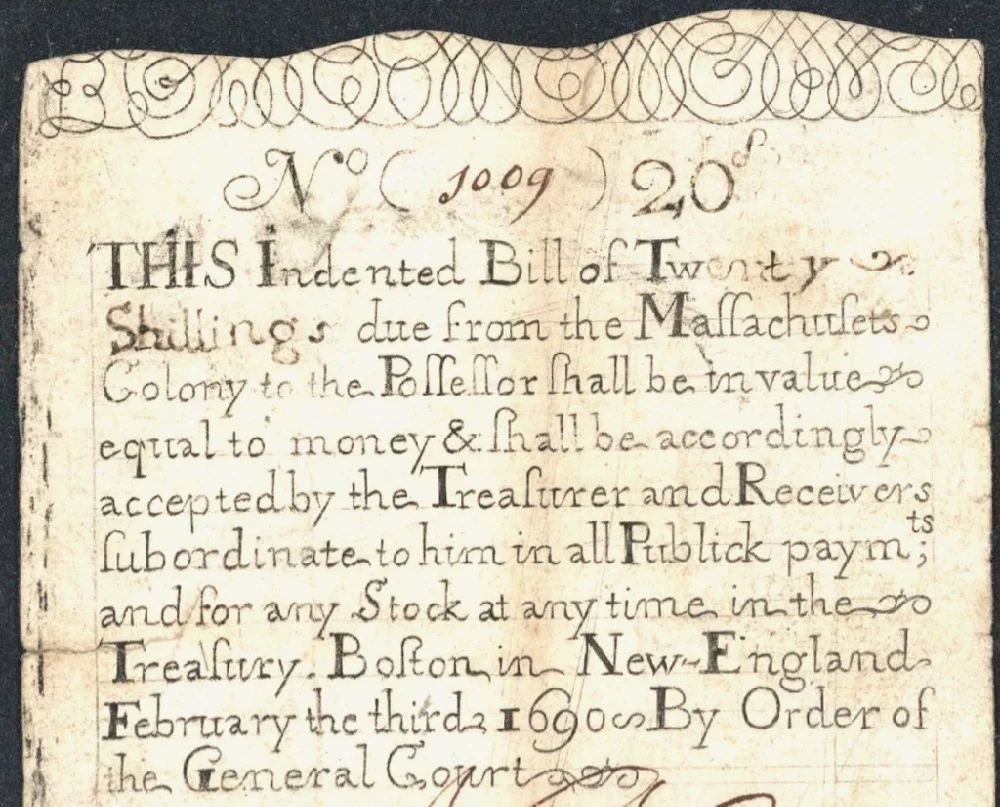 No (1009) 20s
THIS Indented Bill of Twenty
Shillings due from the Maſſachuſets
Colony to the Poſſeſſor ſhall be in value
equal to money & ſhall be accordingly
accepted by the Treaſurer and Receivers
ſubordinate to him in all Publick paymts;
and for any Stock at any time in the
Treaſury. Boſton in New-England
February the third 1690 By Order of
the General Court